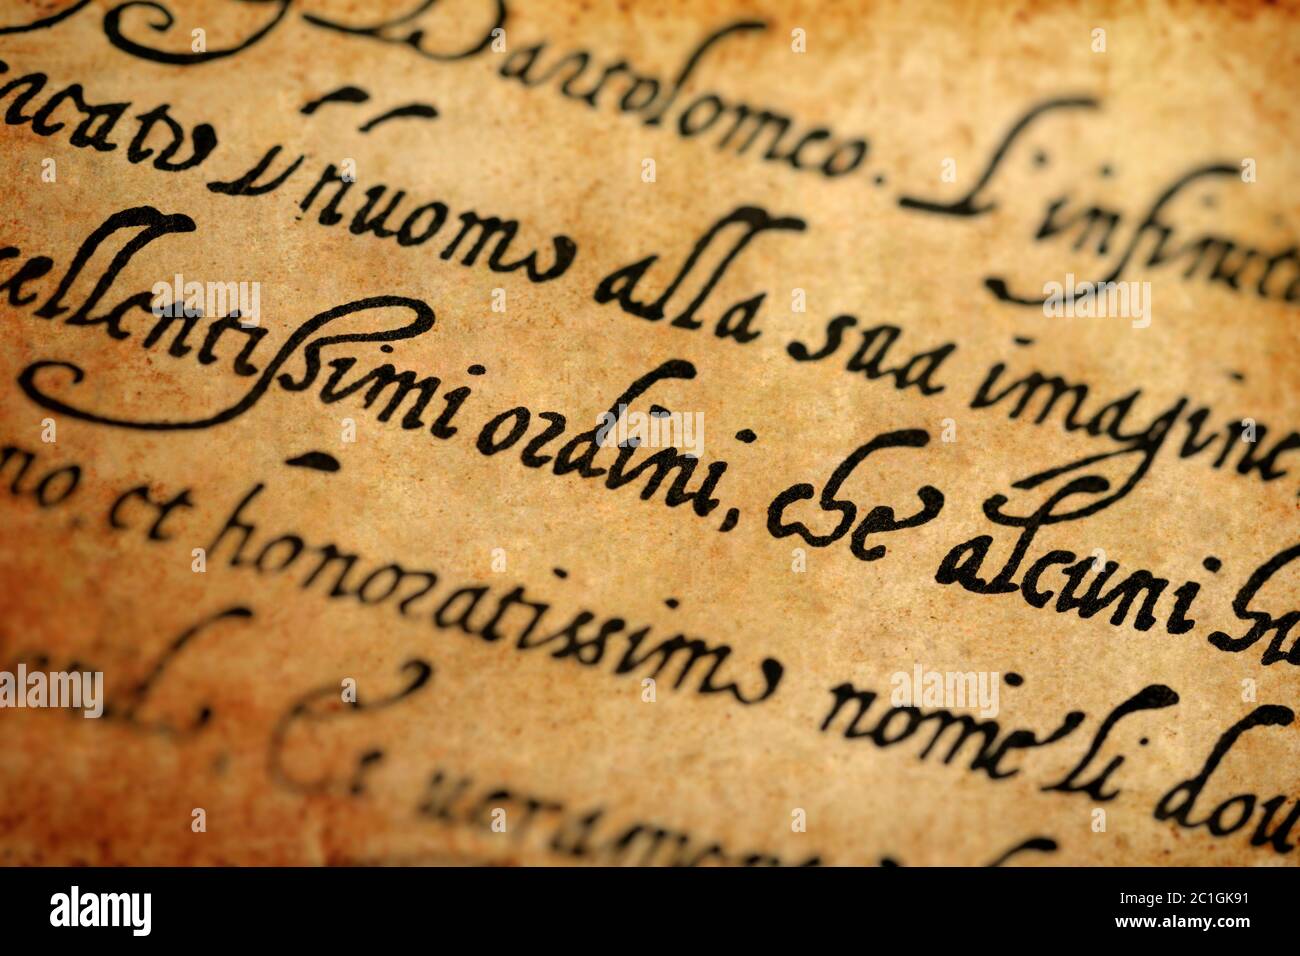 Bartolomeo. L'infinit
ricato v'è l'huomo alla sua imagine
cellentissimi ordini, che alcuni ho
no, et honoratissimo nome li dou
Et ueramen
alamy
Image ID: 2C1GK91
www.alamy.com